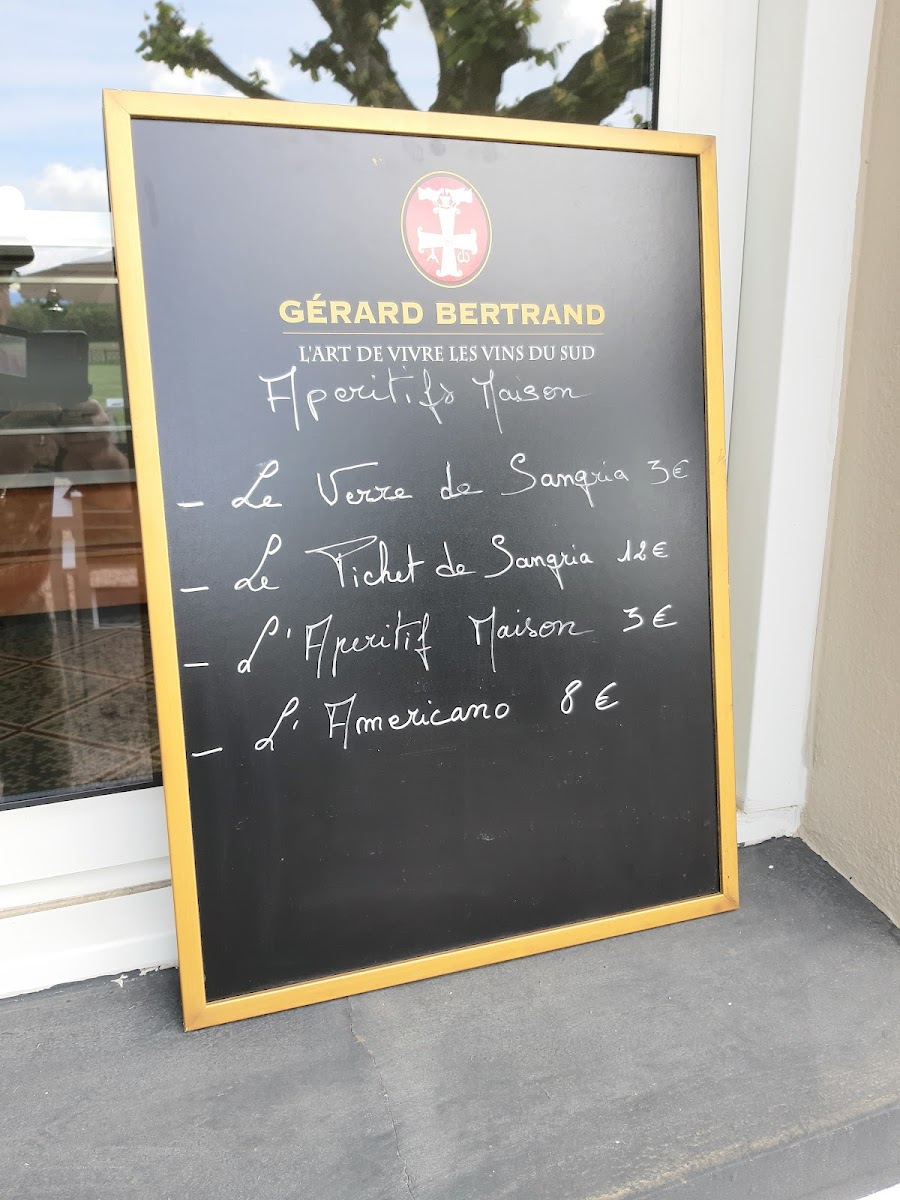 GÉRARD BERTRAND
L'ART DE VIVRE LES VINS DU SUD
Aperitifs Maison
- Le Verre de Sangria 3€
- Le Pichet de Sangria 12€
- L'Aperitif Maison 3€
- L'Americano 8€